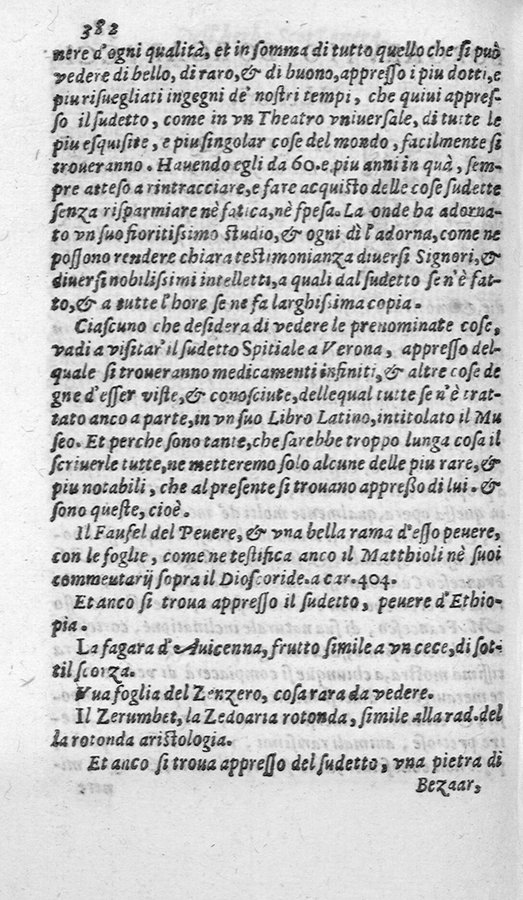 382
nere d'ogni qualità, et in somma di tutto quello che si può
vedere di bello, di raro, & di buono, appresso i piu dotti, e
piu risuegliati ingegni de' nostri tempi, che quiui appres-
so il sudetto, come in vn Theatro vniuersale, di tutte le
piu esquisite, e piu singolar cose del mondo, facilmente si
troueranno. Hauendo egli da 60. e piu anni in quà, sem-
pre atteso a rintracciare, e fare acquisto delle cose sudette
senza risparmiare nè fatica, nè spesa. La onde ha adorna-
to vn suo fioritissimo studio, & ogni dì l'adorna, come ne
possono rendere chiara testimonianza diuersi Signori, &
diuersi nobilissimi intelletti, a quali dal sudetto se n'è fat-
to, & a tutte l'hore se ne fa larghissima copia.
Ciascuno che desidera di vedere le prenominate cose,
vadi a visitar' il sudetto Spitiale a Verona, appresso del-
quale si troueranno medicamenti infiniti, & altre cose de
gne d'esser viste, & conosciute, delle qual tutte se n'è trat-
tato anco a parte, in vn suo Libro Latino, intitolato il Mu
seo. Et perche sono tante, che sarebbe troppo lunga cosa il
scriuerle tutte, ne metteremo solo alcune delle piu rare, &
piu notabili, che al presente si trouano appresso di lui. &
sono queste, cioè.
Il Faufel del Peuere, & vna bella rama d'esso peuere,
con le foglie, come ne testifica anco il Matthioli nè suoi
commentarij sopra il Dioscoride. a car. 404.
Et anco si troua appresso il sudetto, peuere d'Ethio-
pia.
La fagara d'Auicenna, frutto simile a vn cece, di sot-
til scorza.
Vua foglia del Zenzero, cosa rara da vedere.
Il Zerumbet, la Zedoaria rotonda, simile alla rad. del
la rotonda aristologia.
Et anco si troua appresso del sudetto, vna pietra di
Bezaar,